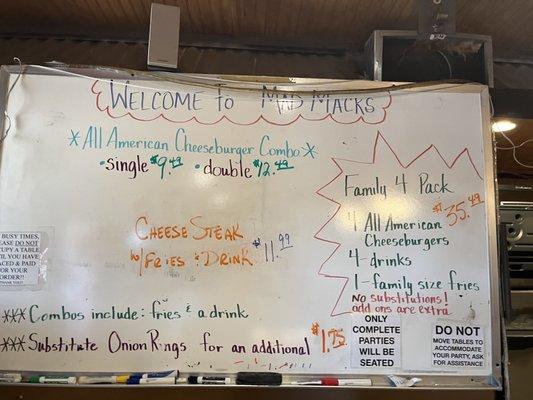 WELCOME to MAD MACKS
*All American Cheeseburger Combo*
•single $9.49 •double $12.49
Family 4 Pack
$35.49
4 All American
Cheeseburgers
4 - drinks
1 - family size fries
No substitutions!
add ons are extra
CHEESE STEAK
w/ FRIES & DRINK $11.99
BUSY TIMES,
EASE DO NOT
UPY A TABLE
TIL YOU HAVE
& PAID
FOR YOUR
ORDER!!
THANK YOU!
*** Combos include: fries & a drink
*** Substitute Onion Rings for an additional $1.75
ONLY
COMPLETE
PARTIES
WILL BE
SEATED
DO NOT
MOVE TABLES TO
ACCOMMODATE
YOUR PARTY, ASK
FOR ASSISTANCE